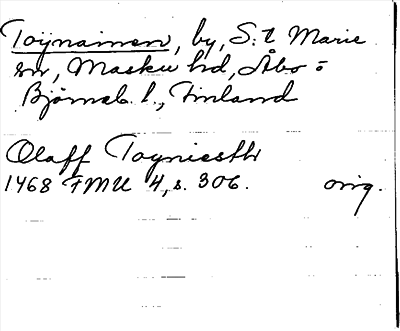 Toijnainen, by, S:t Marie
sn, Masku hd, Åbo o
Björneb. l., Finland
Olaff Toyniesth
1468 FMU 4, s. 306. orig.